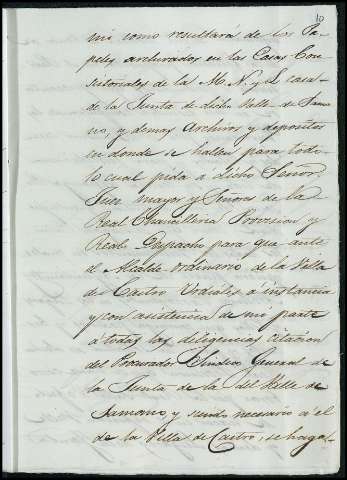 10
mi como resultará de los Pa-
peles archivados en las Casas Con-
sistoriales de la M. N. y L. casa
de la Junta de dicho Valle de Sama-
no, y demas Archivos y depositos
en donde se hallen para todo
lo cual pida a dicho Señor
Juez mayor y Señores de la
Real Chancilleria Provision y
Reales Despachos para que ante
el Alcalde ordinario de la Villa
de Castro Urdiales á instancia
y con asistencia de mi parte
á todas las diligencias citacion
del Procurador Sindico General de
la Junta de la del Valle de
Samano y siendo necesario á el
de la Villa de Castro, se haga